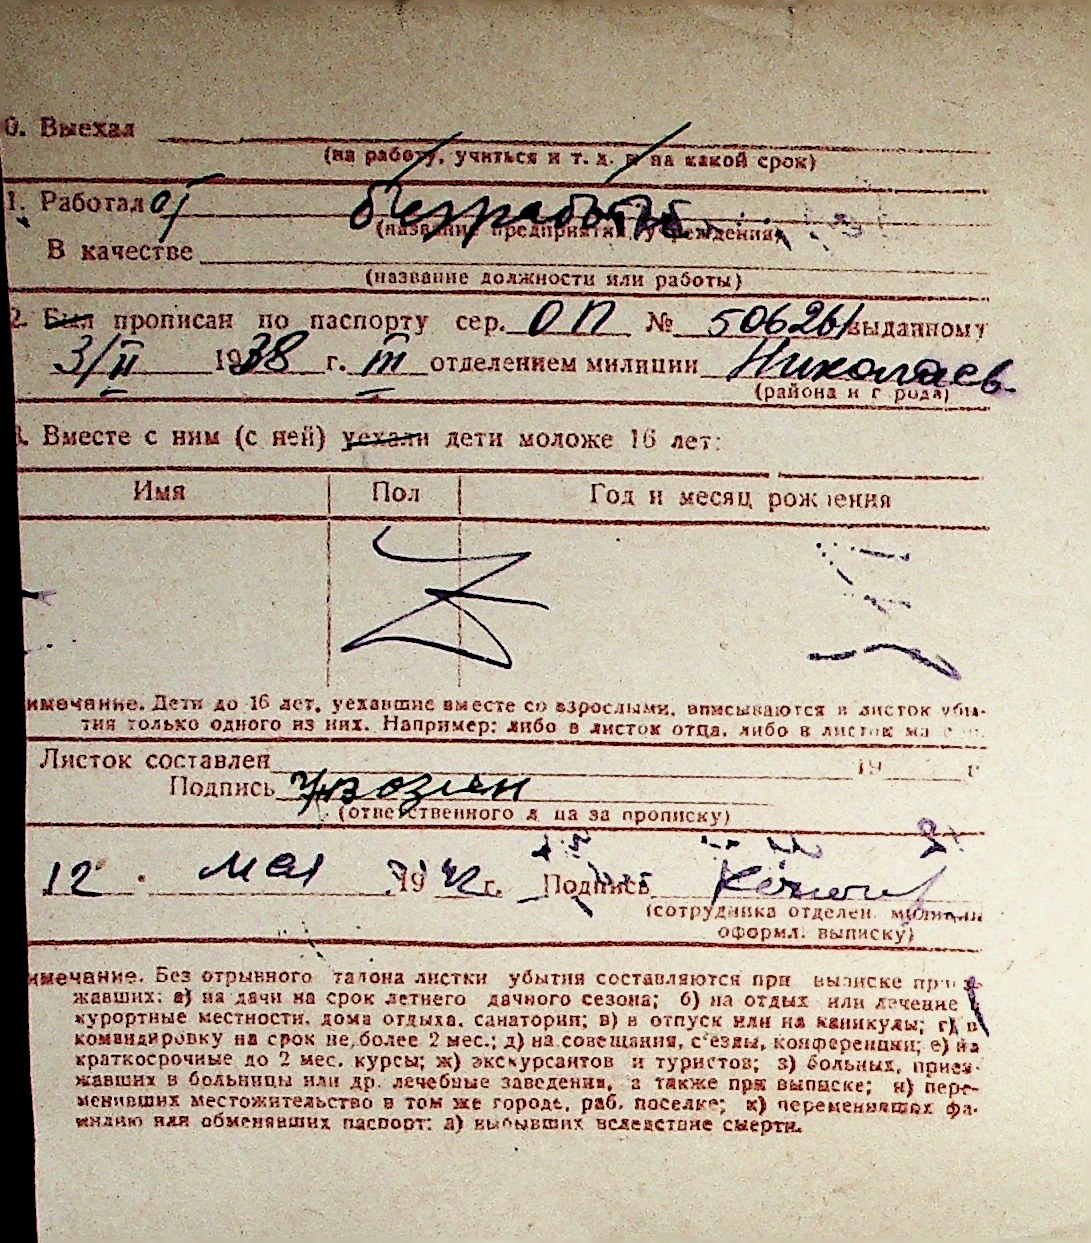 0. Выехал
(на работу, учиться и т. д. и на какой срок)
1. Работал
(название предприятия, учреждения)
В качестве
(название должности или работы)
2. Был прописан по паспорту сер. ОП № 506261 выданному
3/II 1938 г. III отделением милиции Николаев
(района и г рода)
. Вместе с ним (с ней) уехали дети моложе 16 лет:
Имя Пол Год и месяц рождения
имечание. Дети до 16 лет, уехавшие вместе со взрослыми, вписываются в листок убы-
тия только одного из них. Например: либо в листок отца, либо в листок
Листок составлен 19 г
Подпись
(ответственного л ца за прописку)
12 мая 1942 г. Подпись
(сотрудника отделен. милиции
оформл. выписку)
имечание. Без отрывного талона листки убытия составляются при выписке
жавших: а) на дачи на срок летнего дачного сезона; б) на отдых или лечение
курортные местности, дома отдыха, санатории; в) в отпуск или на каникулы; г) в
командировку на срок не более 2 мес.; д) на совещания, с'езды, конференции; е) на
краткосрочные до 2 мес. курсы; ж) экскурсантов и туристов; з) больных, приез-
жавших в больницы или др. лечебные заведения, а также при выписке; и) пере-
менивших местожительство в том же городе, раб. поселке; к) переменивших фа-
милию или обменявших паспорт: л) выбывших вследствие смерти.